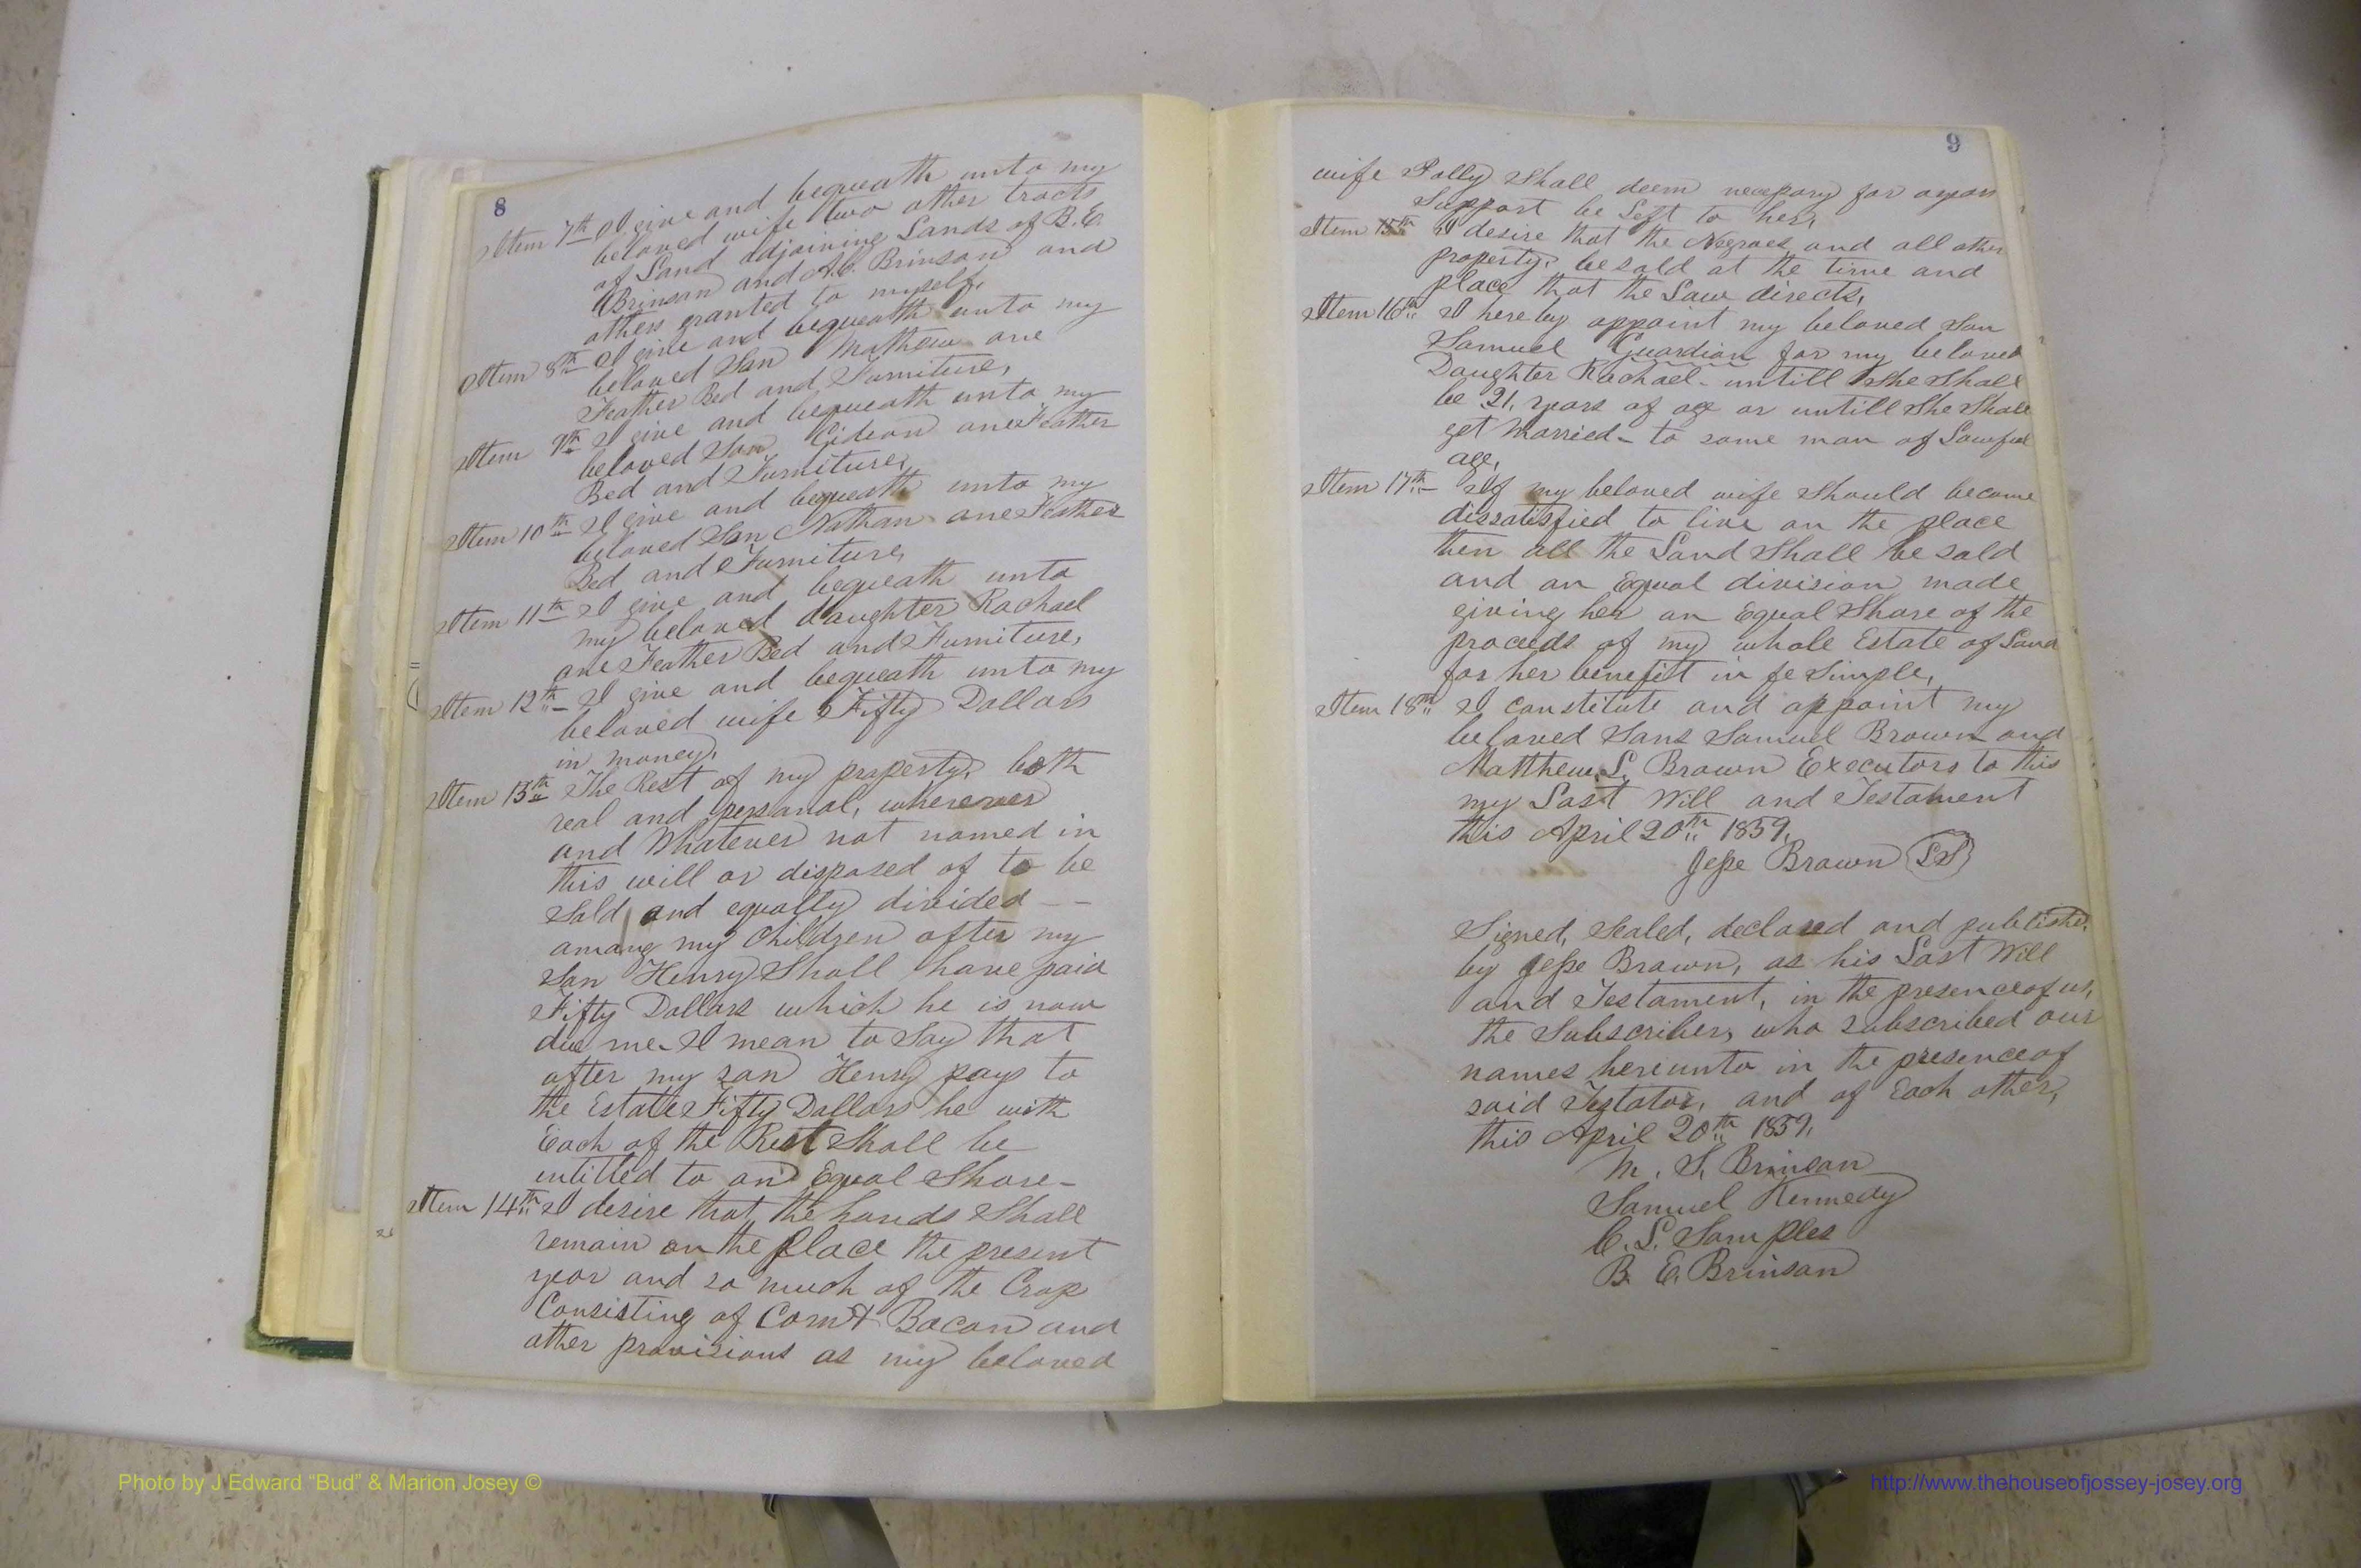 8
Item 7th I give and bequeath unto my
beloved wife two other tracts
of Land adjoining Lands of B. E.
Brinson and A. C. Brinson and
others granted to myself.
Item 8th I give and bequeath unto my
beloved Son Mathew one
Feather Bed and Furniture,
Item 9th I give and bequeath unto my
beloved Son Gideon one Feather
Bed and Furniture,
Item 10th I give and bequeath unto my
beloved Son Nathan one Feather
Bed and Furniture,
Item 11th I give and bequeath unto
my beloved daughter Rachael
one Feather Bed and Furniture,
Item 12th I give and bequeath unto my
beloved wife Fifty Dollars
in money,
Item 13th The Rest of my property, both
real and personal, wherever
and Whatever not named in
this will or disposed of to be
Sold and equally divided - -
among my Children after my
Son Henry Shall have paid
Fifty Dollars which he is now
due me - I mean to Say that
after my son Henry pays to
the Estate Fifty Dollars he with
Each of the Rest Shall be
intitled to an Equal Share -
Item 14th I desire that the hands Shall
remain on the place the present
year and so much of the Crop
Consisting of Corn & Bacon and
other provisions as my beloved
9
wife Polly Shall deem necessary for a years
Support be Left to her,
Item 15th I desire that the Negroes and all other
property, be sold at the time and
place that the Law directs,
Item 16th I hereby appoint my beloved Son
Samuel Guardian for my beloved
Daughter Rachael - untill She Shall
be 21, years of age or untill She Shall
get Married - to some man of Lawful
age,
Item 17th - If my beloved wife Should become
dissatisfied to live on the place
then all the Land Shall be sold
and an Equal division made
giving her an Equal Share of the
proceeds of my whole Estate of Land
for her benefitt in fe Simple,
Item 18th I Constitute and appoint my
beloved Sons Samuel Brown and
Matthew. L. Brown Executors to this
my Last Will and Testament
this April 20th 1859,
Jesse Brown LS
Signed, Sealed, declared and published
by Jesse Brown, as his Last Will
and Testament, in the presence of us,
the Subscribers, who subscribed our
names hereunto in the presence of
said Testator, and of Each other,
this April 20th 1859,
M. S. Brinson
Samuel Kennedy
C. L. Samples
B. E. Brinson
Photo by J Edward “Bud” & Marion Josey ©
http://www.thehouseofjossey-josey.org